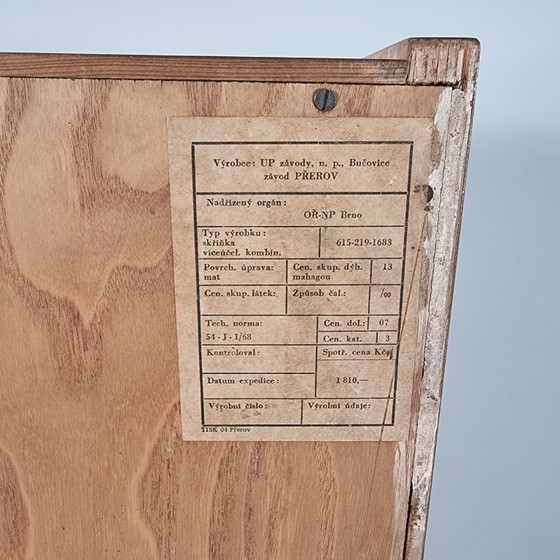 Výrobce: UP závody, n. p., Bučovice
závod PŘEROV
Nadřízený orgán:
OŘ-NP Brno
Typ výrobku:
skříňka
víceúčel. kombin.
615-219-1683
Povrch. úprava:
mat
Cen. skup. dýh.
mahagon
13
Cen. skup. látek:
Způsob čal.:
/00
Tech. norma:
54 - J - 1/68
Cen. dol.:
07
Cen. kat.
3
Kontroloval:
Spotř. cena Kčs
Datum expedice:
1 810,—
Výrobní číslo:
Výrobní údaje:
TISK 04 Přerov